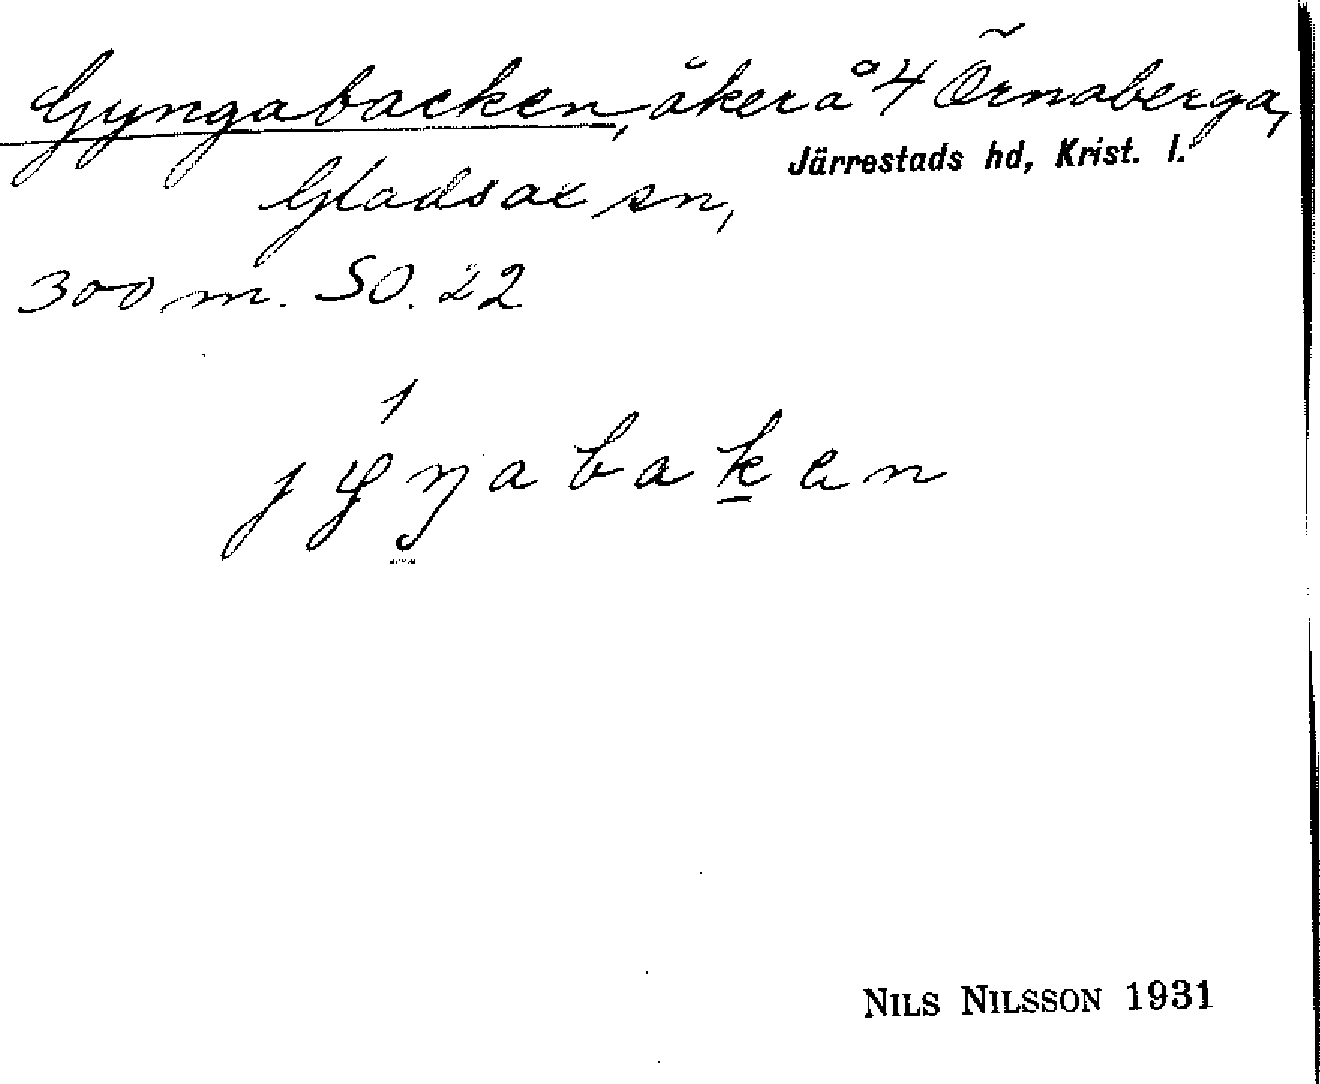 Gyngabacken, åker å 4 Örnaberga,
Järrestads hd, Krist. l.
Gladsax sn,
300 m. SO. 22
jyŋabaken
NILS NILSSON 1931